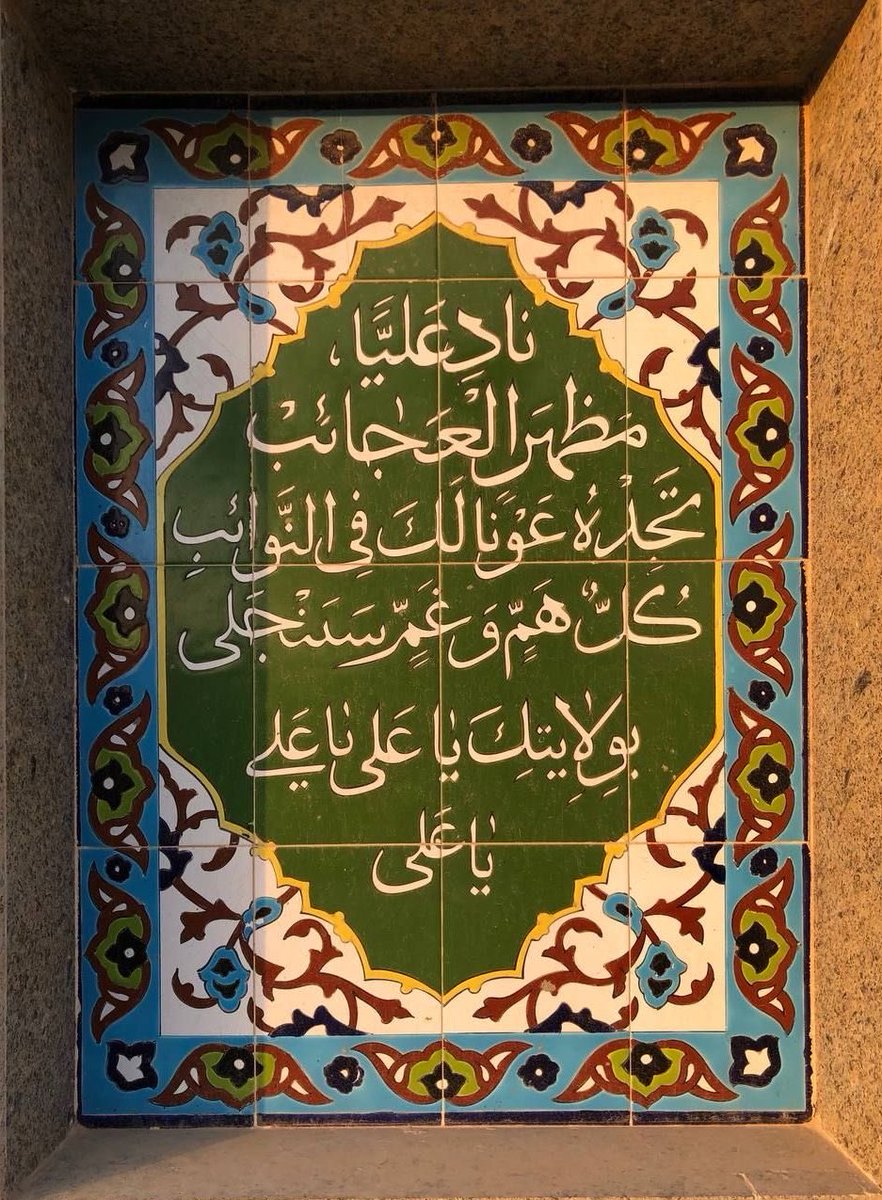 نادِ عَليَّا،
مَظهَرَ الْعَجٰائبْ
تَجِدْهُ عَوْنَا لَكَ فِی النَّوٰائِبِ
كُلُّ هَمٍّ وَ غَمِّ سَيَنْجَلی
بوِلٰايتِكَ يٰا عَلی يٰا عَلے
يٰا عَلی